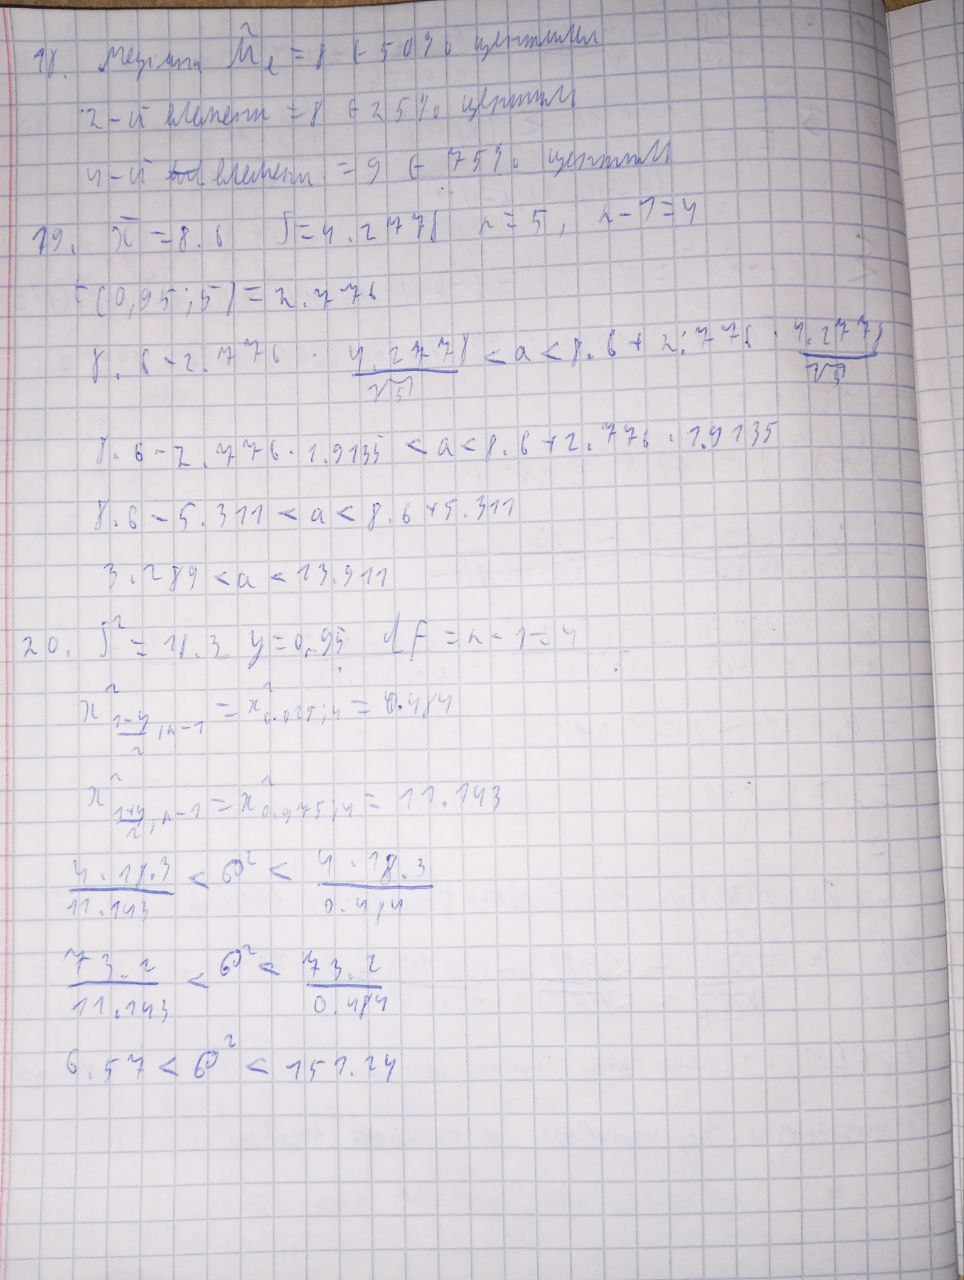 18. Медіана M̃e = 8 ← 50% центиль
2-й елемент = 8 ← 25% центиль
4-й елемент = 9 ← 75% центиль
19. x̄ = 8.6 S = 4.2778 n = 5, n-1 = 4
t(0,95; 5) = 2.776
8.6 - 2.776 · 4.2778/√5 < a < 8.6 + 2.776 · 4.2778/√5
8.6 - 2.776 · 1.9135 < a < 8.6 + 2.776 · 1.9135
8.6 - 5.311 < a < 8.6 + 5.311
3.289 < a < 13.911
20. S² = 18.3 y = 0,95 df = n - 1 = 4
x²_{(1-y)/2, n-1} = x²_{0.025; 4} = 0.484
x²_{(1+y)/2, n-1} = x²_{0.975; 4} = 11.143
4·18.3/11.143 < σ² < 4·18.3/0.484
73.2/11.143 < σ² < 73.2/0.484
6.57 < σ² < 151.24